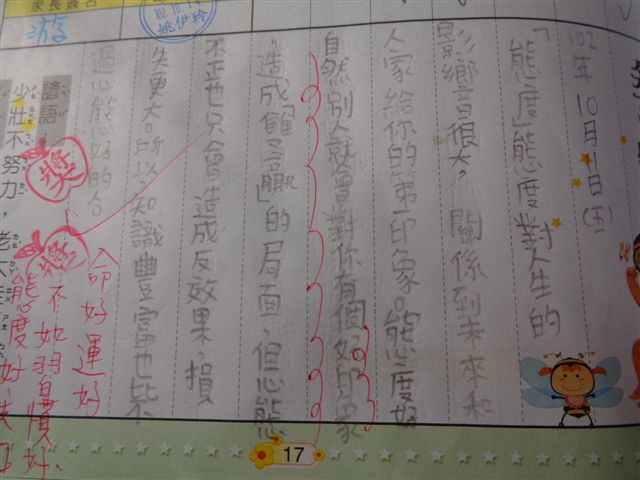 家長簽名
游
姚伊玲
102年10月11日(五)
「態度」態度對人生的
影響很大，關係到未來和
人家給你的第一印象。態度好
自然別人就會對你有個好印象
，造成「雙贏」的局面，但心態
不正也只會造成反效果，損
失更大。所以知識豐富也比不
過心態好的人
命好運好
不如習慣好、
態度好
諺語：
少壯不努力，老大
17